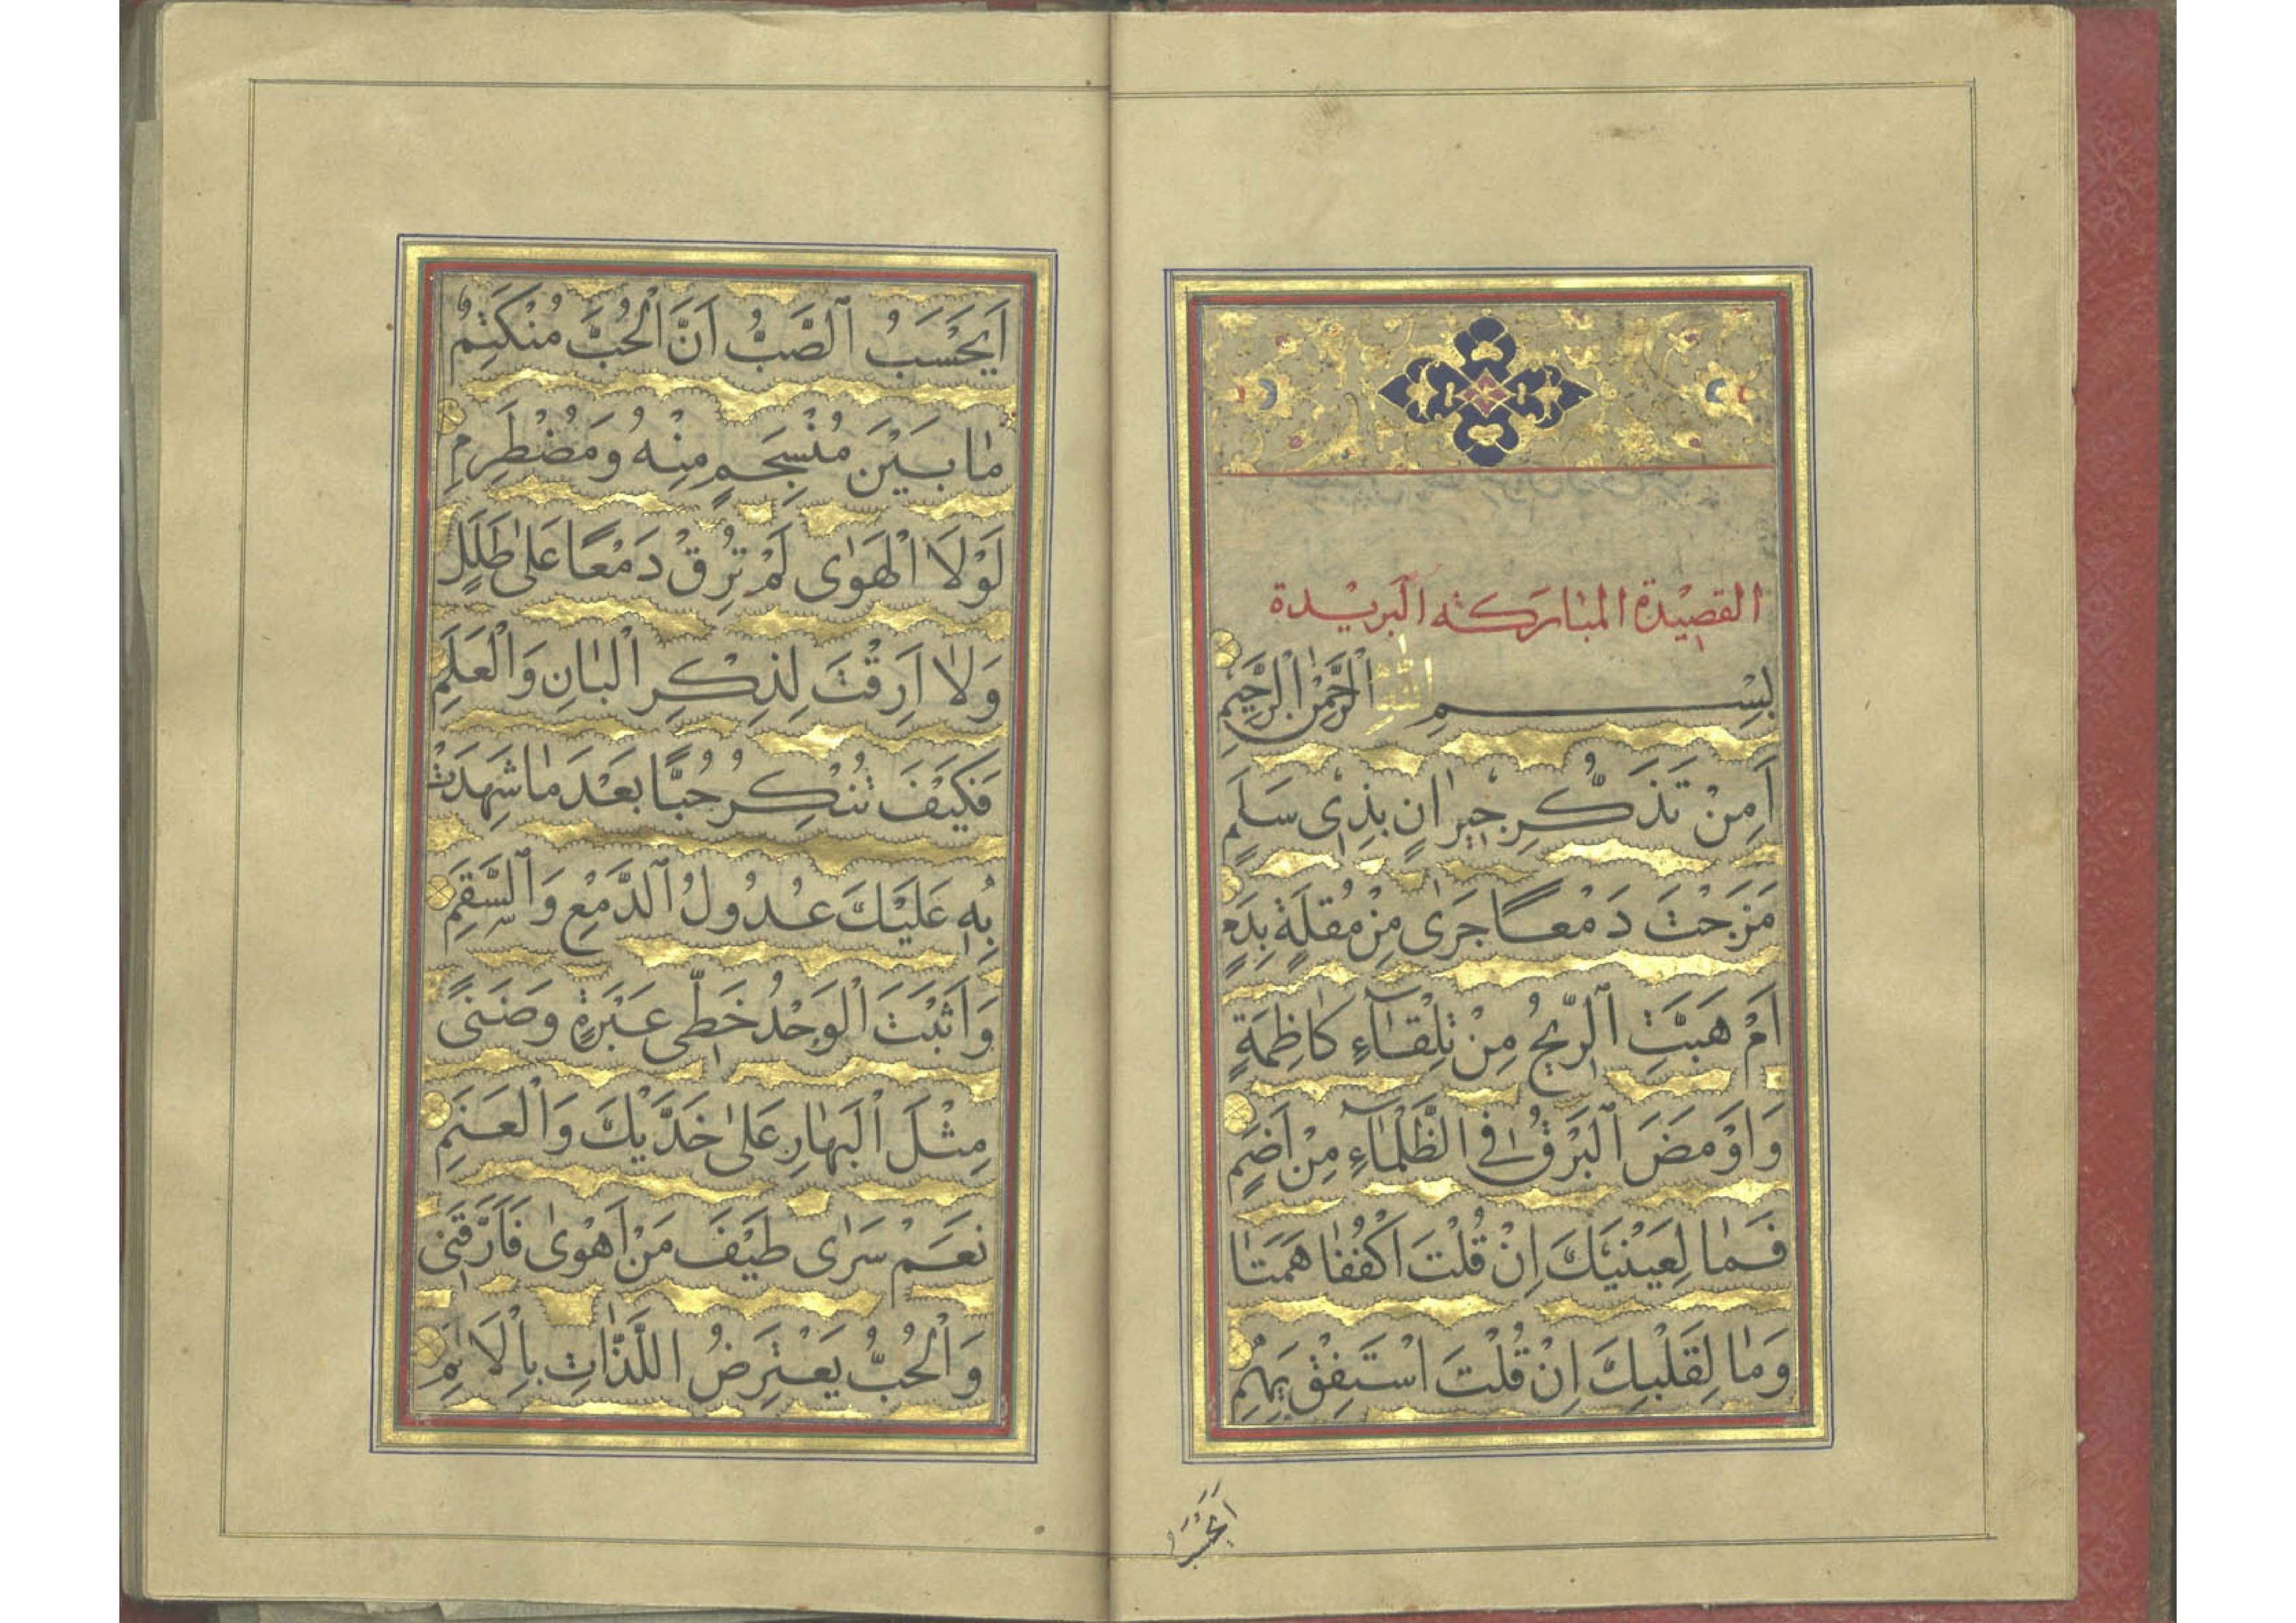 القصيدة المباركة البريدة
بِسْمِ اللّٰهِ الرَّحْمٰنِ الرَّحِيمِ
اَمِنْ تَذَكُّرِ جِيرَانٍ بِذِى سَلَمٍ
مَزَجْتَ دَمْعًا جَرٰى مِنْ مُقْلَةٍ بِدَمٍ
اَمْ هَبَّتِ الرِّيحُ مِنْ تِلْقَآءِ كَاظِمَةٍ
وَاَوْمَضَ الْبَرْقُ فِى الظَّلْمَآءِ مِنْ اَضَمٍ
فَمَا لِعَيْنَيْكَ اِنْ قُلْتَ اكْفُفَا هَمَتَا
وَمَا لِقَلْبِكَ اِنْ قُلْتَ اسْتَفِقْ يَهِمِ
اَيَحْسَبُ
اَيَحْسَبُ الصَّبُّ اَنَّ الْحُبَّ مُنْكَتِمٌ
مَا بَيْنَ مُنْسَجِمٍ مِنْهُ وَمُضْطَرِمِ
لَوْلَا الْهَوٰى لَمْ تُرِقْ دَمْعًا عَلٰى طَلَلٍ
وَلَا اَرِقْتَ لِذِكْرِ الْبَانِ وَالْعَلَمِ
فَكَيْفَ تُنْكِرُ حُبًّا بَعْدَ مَا شَهِدَتْ
بِهِ عَلَيْكَ عُدُولُ الدَّمْعِ وَالسَّقَمِ
وَاَثْبَتَ الْوَجْدُ خَطَّى عَبْرَةٍ وَضَنًى
مِثْلَ الْبَهَارِ عَلٰى خَدَّيْكَ وَالْعَنَمِ
نَعَمْ سَرٰى طَيْفُ مَنْ اَهْوٰى فَاَرَّقَنِى
وَالْحُبُّ يَعْتَرِضُ اللَّذَّاتِ بِالْاَلَمِ